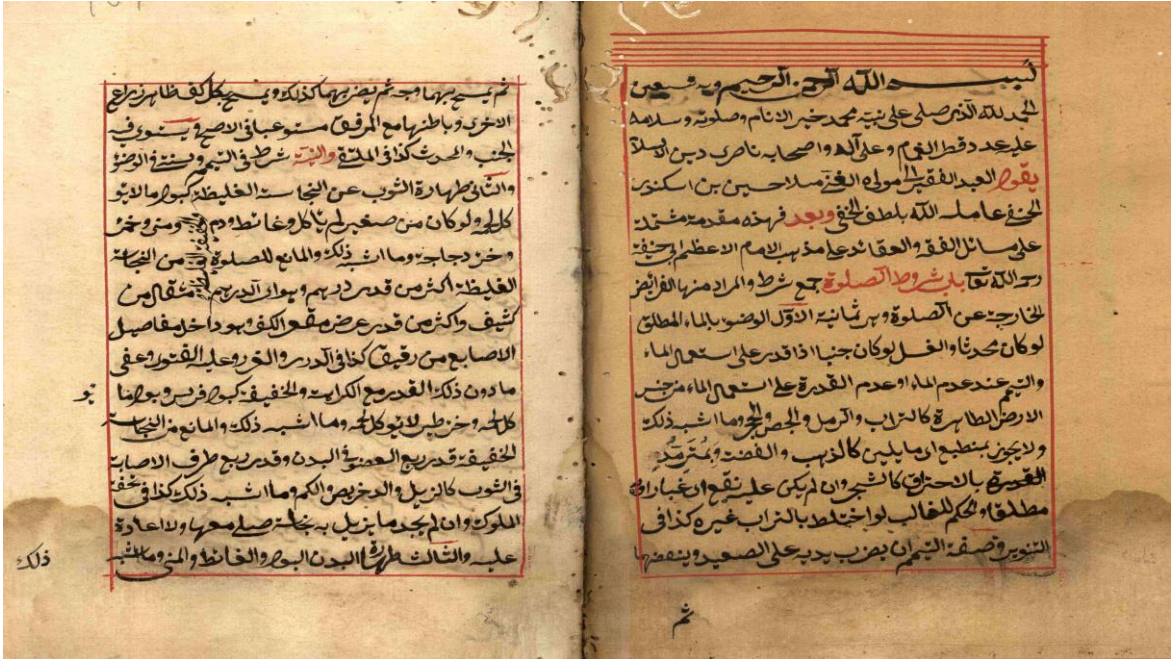 بسم الله الرحمن الرحيم وبه نستعين
الحمد لله الذى صلى على نبيه محمد خير الانام وصلوته وسلامه
عليه عدد قطر الغمام وعلى آله واصحابه ناصرى دين الاسلا
يقول العبد الفقير الى مولاه الغنى ملا حسين بن اسكندر
الحنفى عامله الله بلطفه الخفى وبعد فهذه مقدمة مشتملة
على مسائل الفقه والعقائد على مذهب الامام الاعظم ابى حنيفة
رحمه الله تعا باب شروط الصلوة جمع شرط والمراد منها الفرائض
الخارجة عن الصلوة وهى ثمانية الاول الوضوء بالماء المطلق
لو كان محدثا والغسل لو كان جنبا اذا قدر على استعمال الماء
والتيمم عند عدم الماء او عدم القدرة على استعمال الماء من جنس
الارض الطاهرة كالتراب والرمل والجص والحجر وما اشبه ذلك
ولا يجوز بمنطبع اى ما يلين كالذهب والفضة وبمترمد
بالاحتراق كالشجر وان لم يكن عليه نقع اى غبار اى
مطلقا والحكم للغالب لو اختلط بالتراب غيره كذا فى
التنوير وصفة التيمم ان يضرب يديه على الصعيد وينفضهما
ثم
ثم يمسح بهما وجهه ثم يضرب بهما كذلك ويمسح بكل كف ظاهر ذراع
الاخرى وباطنها مع المرفق مستوعبا فى الاصح ويستوى فيه
الجنب والمحدث كذا فى الملتقى والنية شرط فى التيمم وسنة فى الوضوء
والثانى طهارة الثوب عن النجاسة الغليظة كبول ما لا يؤ
كل لحمه ولو كان من صغير لم ياكل وغائط ودم ومنى وخمر
وخرء دجاجة وما اشبه ذلك والمانع للصلوة من النجاسة
الغليظة اكثر من قدر درهم وهو اى الدرهم مثقال من
كثيف واكثر من قدر عرض مقعر الكف وهو داخل مفاصيل
الاصابع من رقيق كذا فى الدرر والغرر وعليه الفتوى وعفى
ما دون ذلك القدر مع الكراهة والخفيفة كبول فرس وبول ما
يؤ
كل لحمه وخرء طير لا يؤكل لحمه وما اشبه ذلك والمانع من النجاسة
الخفيفة قدر ربع العضو فى البدن وقدر ربع طرف الاصابة
فى الثوب كالذيل والدخريص والكم وما اشبه ذلك كذا فى تحفة
الملوك وان لم يجد ما يزيل به نجاسته صلى معها ولا اعادة
عليه والثالث طهارة البدن البول والغائط والمنى وما اشبه
ذلك